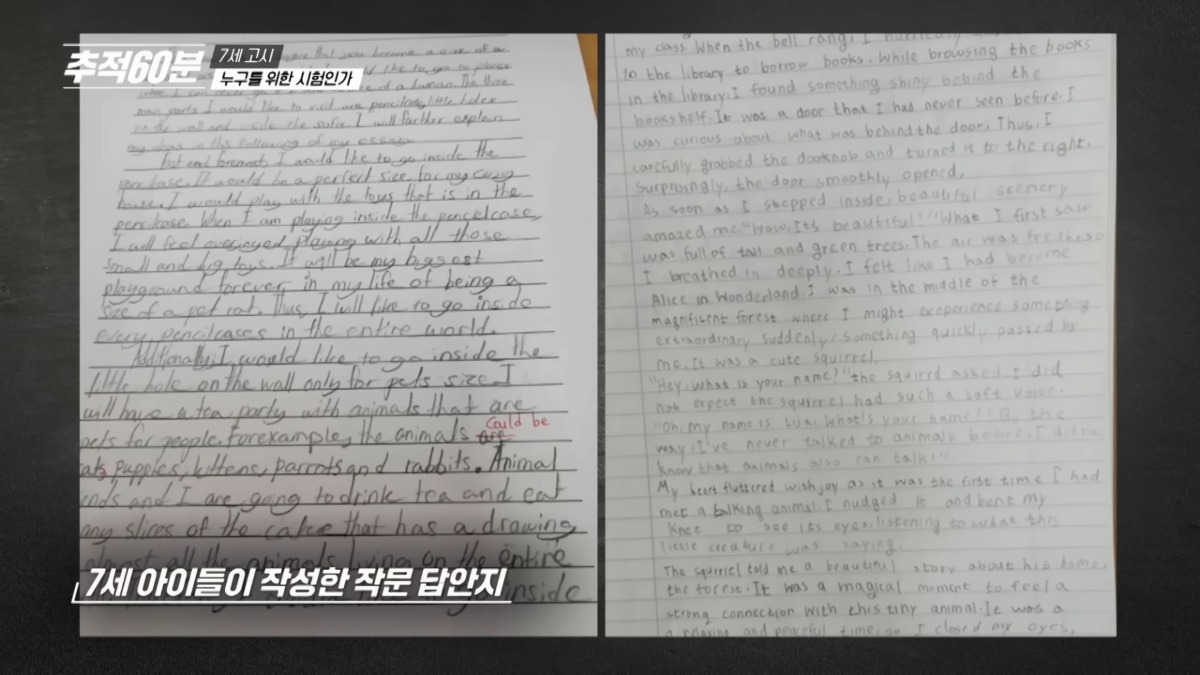 추적60분
7세 고시
누구를 위한 시험인가
main parts I would like to visit are pencilcase, little holes
on the wall and inside the sofa. I will farther explain
my ideas in the following of my essay.
First and foremost, I would like to go inside the
It would be a perfect size for my cozy
house. I would play with the toys that is in the
pencilcase. When I am playing inside the pencelcase,
I will feel overjoyed playing with all those
small and big toys. It will be my biggest
playground forever in my life of being a
size of a pet rat. Thus, I will like to go inside
every pencilcases in the entire world.
Additionally, I would like to go inside the
little hole on the wall only for pets size. I
will have a tea party with animals that are
pets for people. Forexample, the animals are
could be
puppies, kittens, parrots and rabbits. Animal
and I are going to drink tea and eat
any slices of the cake that has a drawing
almost all the animals living on the entire
inside
my class. When the bell rang, I
to the library to borrow books. While browsing the books
in the library, I found something shiny behind the
bookshelf. It was a door that I had never seen before. I
was curious about what was behind the door. Thus, I
carefully grabbed the dooknob and turned it to the right.
Surprisingly, the door smoothly opened.
As soon as I stepped inside, beautiful scenery
amazed me. "Wow. It's beautiful!" What I first saw
was full of tall and green trees. The air was fresh, so
I breathed in deeply. I felt like I had become
Alice in Wonderland. I was in the middle of the
magnifisent forest where I might experience something
extraordinary. Suddenly, something quickly passed by
me. It was a cute squirrel.
"Hey, what is your name?" the squirrel asked. I did
not expect the squirrel had such a soft voice.
"Oh, my name is What's your name?! By the
way, I've never talked to animals before. I didn't
know that animals also can talk!"
My heart fluttered with joy as it was the first time I had
met a talking animal. I nudged it and bent my
knee to see its eyes, listening to what this
little creature was saying.
The squirrel told me a beautiful story about his home,
the forest. It was a magical moment to feel a
strong connection with this tiny animal. It was a
relaxing and peaceful time, so I closed my eyes,
7세 아이들이 작성한 작문 답안지